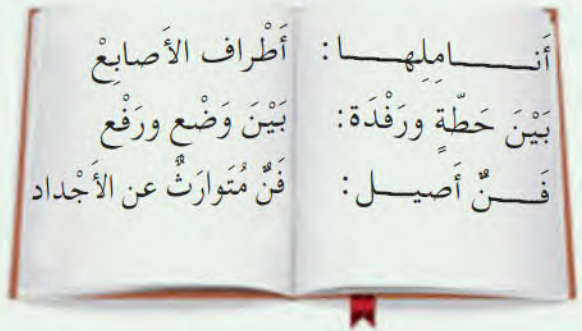 أَنـــامِلِهـــا: أَطْراف الأَصابِعْ
بَيْنَ حَطّةٍ ورَفْدَة: بَيْنَ وَضْع ورَفْع
فَـــنٌّ أَصيـــل: فَنٌّ مُتَوارَثٌ عن الأَجْداد